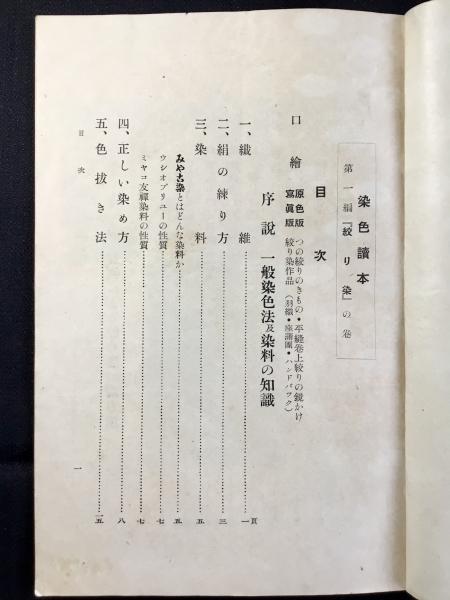 染色讀本
第一編「絞り染」の卷
目次
口繪
原色版 つの絞りのきもの・平縫卷上絞りの鏡かけ
寫眞版 絞り染作品（羽織・座蒲團・ハンドバツク）
序說 一般染色法及染料の知識
一、纖維……頁一
二、絹の練り方……三
三、染料……五
みやこ染とはどんな染料か……五
ウシオブリユーの性質……七
ミヤコ友禪染料の性質……七
四、正しい染め方……八
五、色拔き法……一五
目次
一